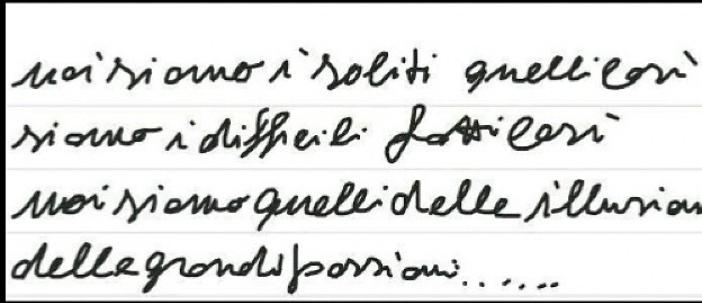 noi siamo i soliti quelli così
siamo i difficili fatti così
noi siamo quelli delle illusion
delle grandi passioni......